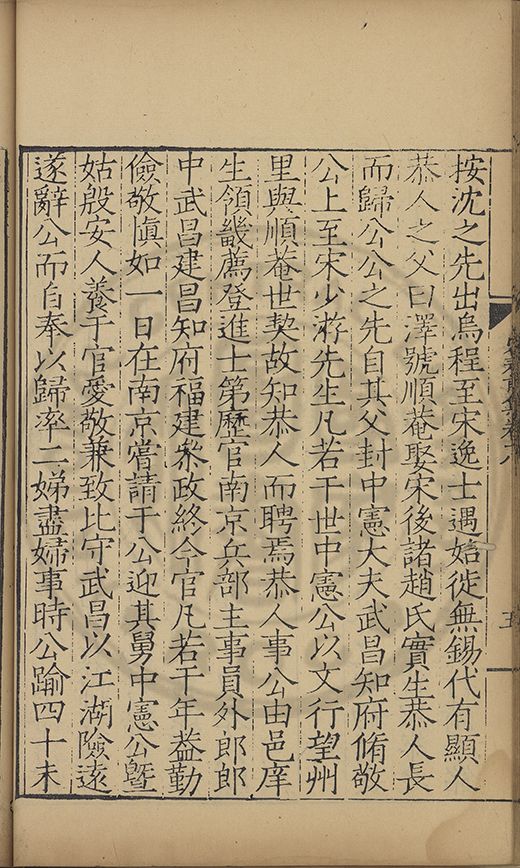 按沈之先出烏程至宋逸士遇始徙無錫代有顯人
恭人之父曰澤號順菴娶宋後諸趙氏實生恭人長
而歸公公之先自其父封中憲大夫武昌知府脩敬
公上至宋少游先生凡若干世中憲公以文行望州
里與順菴世契故知恭人而聘焉恭人事公由邑庠
生領畿薦登進士第歷官南京兵部主事員外郎郎
中武昌建昌知府福建叅政終今官凡若干年益勤
儉敬愼如一日在南京嘗請于公迎其舅中憲公曁
姑殷安人養于官愛敬兼致比守武昌以江湖險遠
遂辭公而自奉以歸率二娣盡婦事時公踰四十未